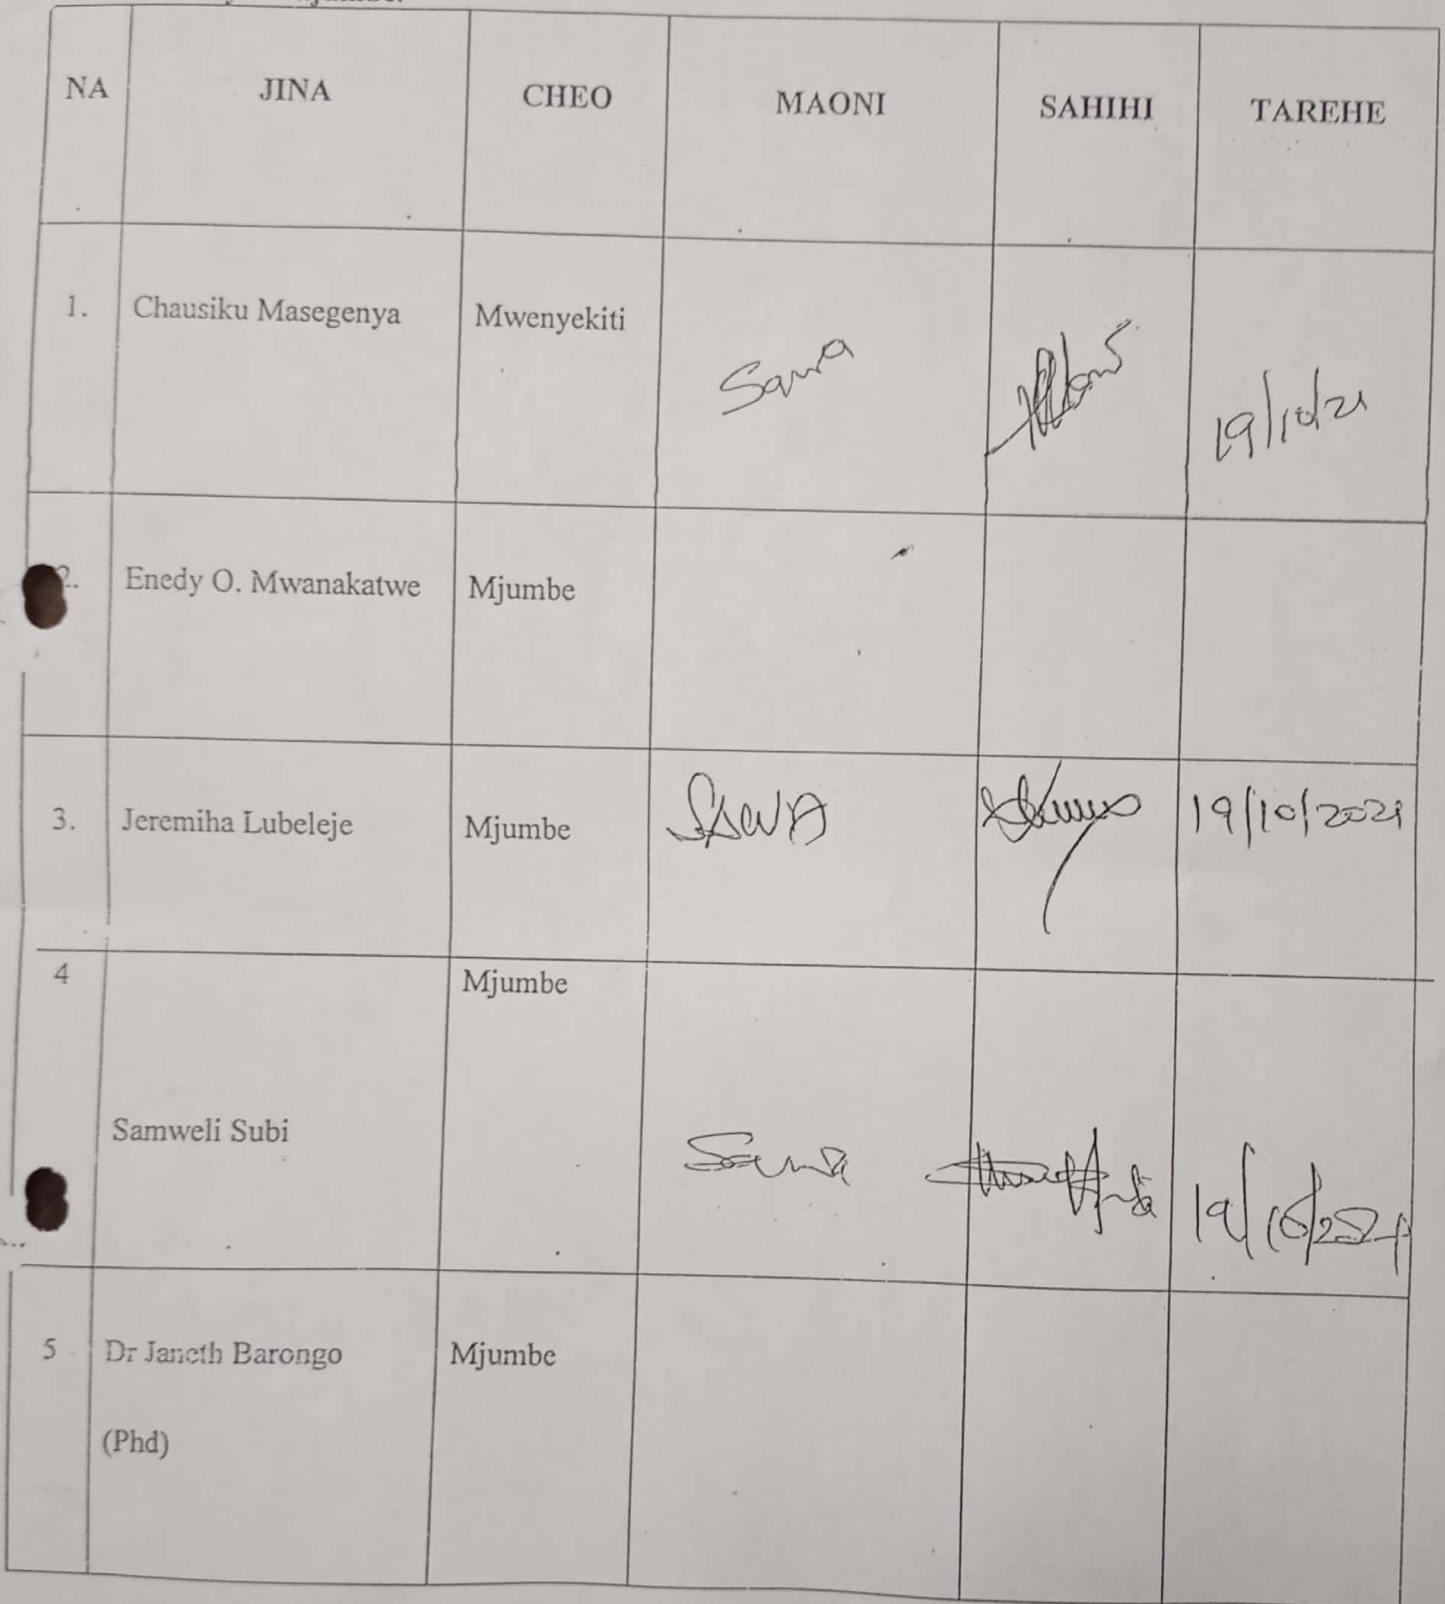 NA JINA CHEO MAONI SAHIHI TAREHE
1. Chausiku Masegenya Mwenyekiti Sawa 19/10/21
2. Enedy O. Mwanakatwe Mjumbe
3. Jeremiha Lubeleje Mjumbe SAWA 19/10/2021
4 Mjumbe
Samweli Subi Sawa 19/10/2021
5 Dr Janeth Barongo Mjumbe
(Phd)